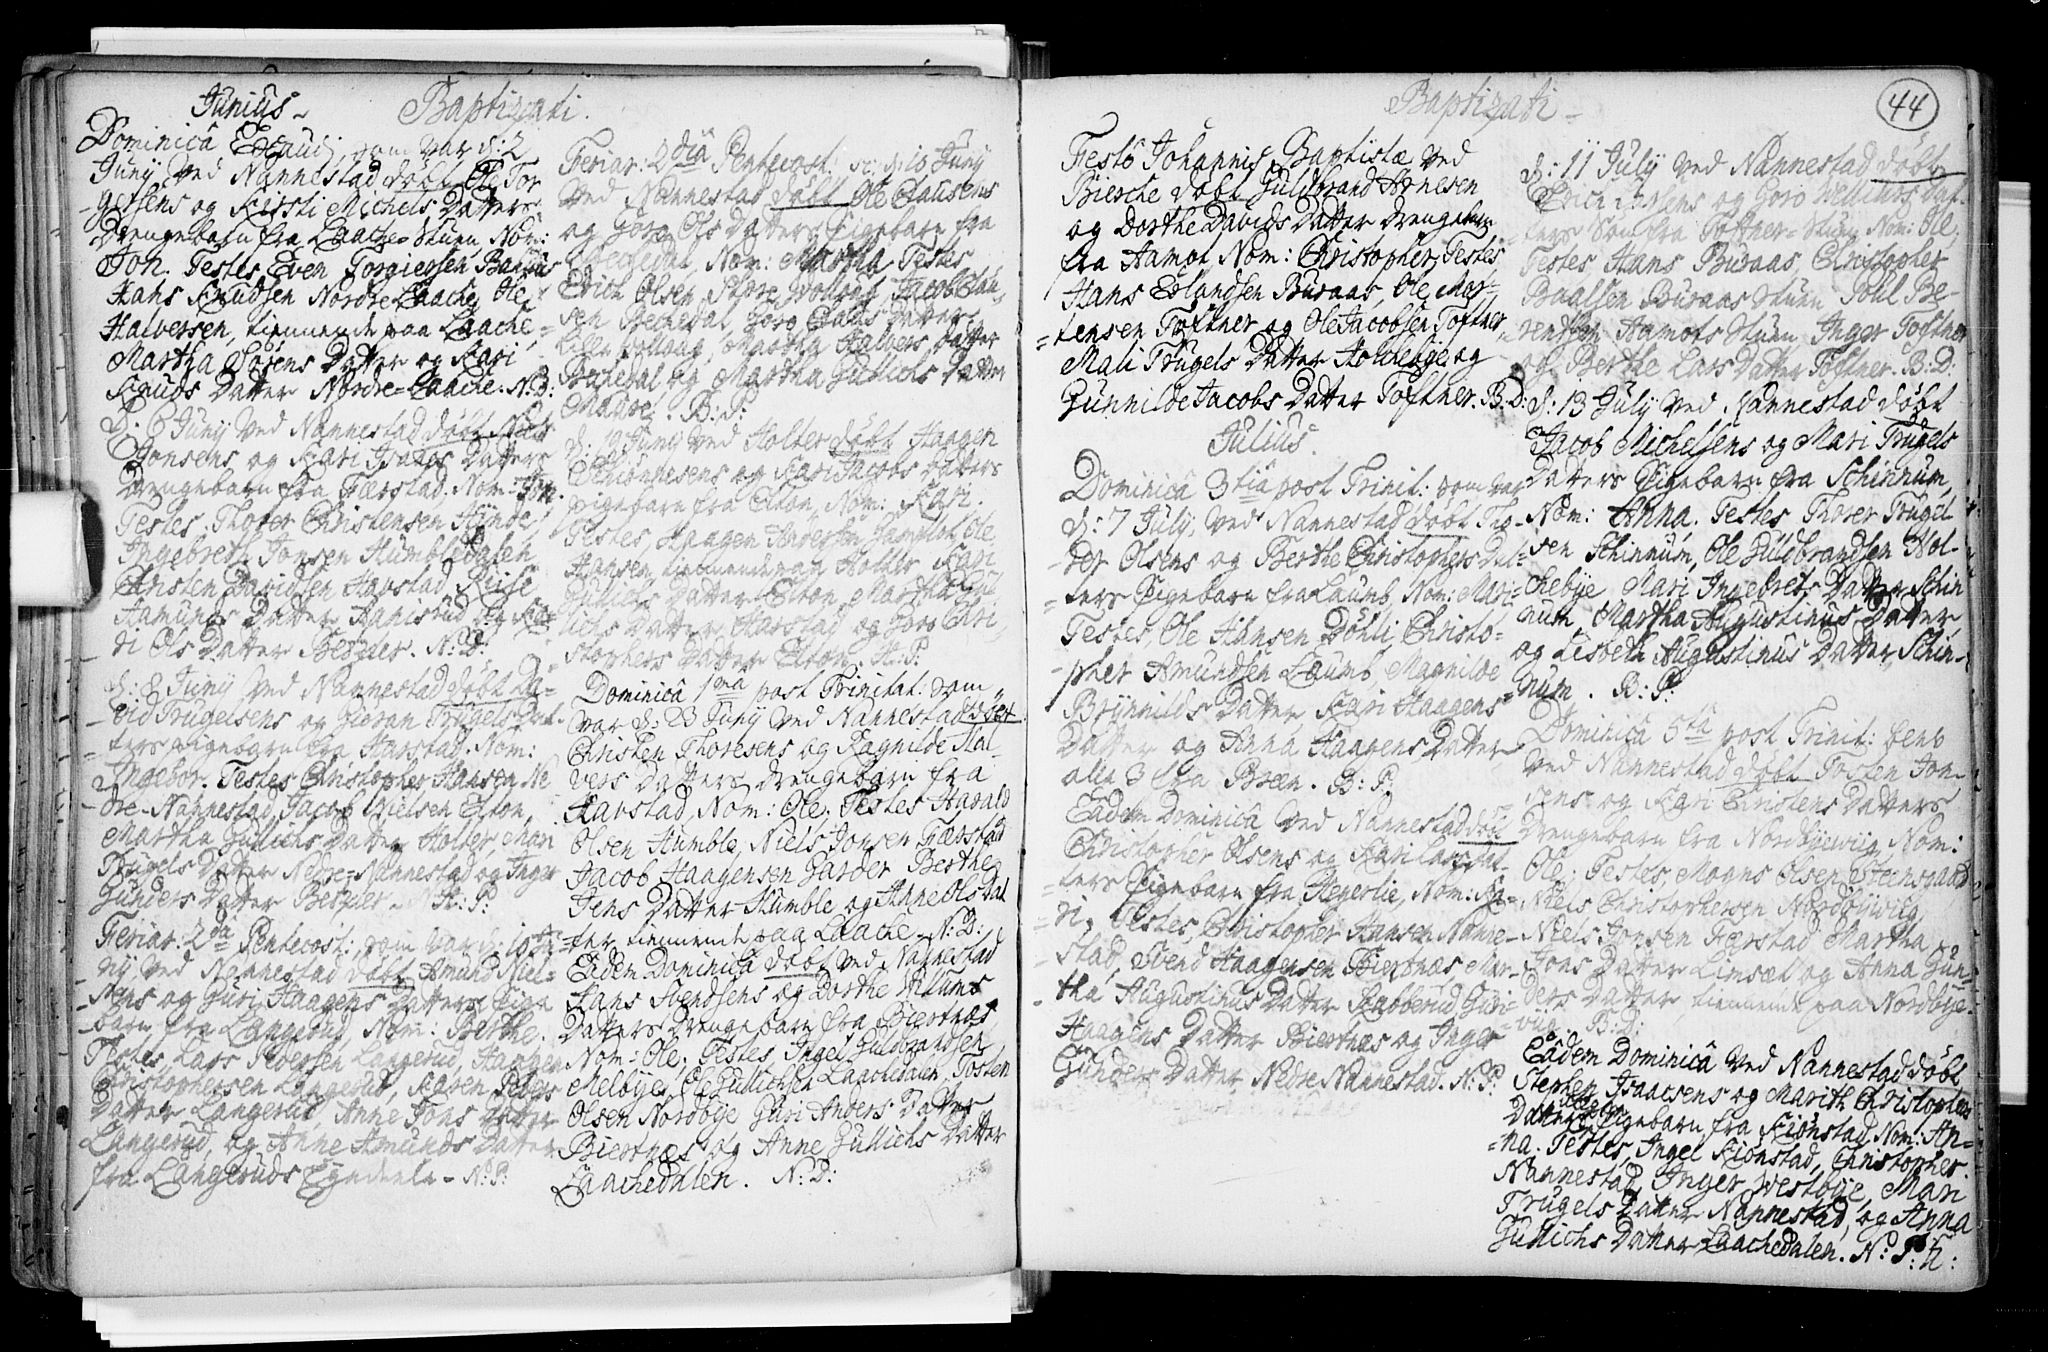 Junius
Baptizati.
Dominicâ Exaudi, som var d: 2
Juny ved Nannestad døbt Ole Tor
gersens og Kirsti Michels Datters
Drengebarn fra Laache-Stuen Nom:
Jon. Testes Even Torgiersen
Hans Knudsen Nordre-Laache, Ole
Halversen, tiennende paa Laache,
Martha Datter og Kari
Knuds Datter Nordre-Laache. N:D:
D. 6 Juny ved Nannestad døbt Niels
Jonsens og Kari Isaacs Datters
Drengebarn fra Færstad. Nom: Jon.
Testes. Thorer Christensen
Ingebreth Jonsen Humbledalen
Christen Davidsen Havstad,
Aamunds Datter og Ka-
ri Ols Datter Berger. N:D:
d: 8 Juny ved Nannestad døbt Da-
vid Trugelsens og Giøran Trugels Dat-
ters Pigebarn fra Harstad. Nom:
Ingebor. Testes Christopher Hansen Ne
dre-Nannestad, Jacob Nielsen Elton,
Martha Gullichs Datter Holter, Mari
Trugels Datter Nedre-Nannestad og Inger
Gunders Datter Berger. H:P:
Feriar: 2da Pentecost: som var d: 10 Ju-
ny ved Nannestad døbt Amund Niel-
sens og Guri Haagens Datters Pige
barn fra Langerud, Nom: Berthe.
Testes, Lars Iversen Langerud, Haagen
Christophersen Langerud, Karen Peders
Datter Langerud, Anne Jons Datter
Langerud, og Anne Amunds Datter
fra Langeruds Egndeele - N:P:
Feriar: 2diâ Pentecost: sc: d: 10 Juny
ved Nannestad døbt Ole Clausens
og Goro Ols Datters Pigebarn fra
Nom: Martha Testes
Erich Olsen Store Wollaug, Jacob Clau-
sen Bechedal, Goro Claus Datter
Lille Wollaug, Martha Halvers Datter
Bechedal og Martha Gullichs Datter
Maure. B:P:
d: 19 Juny ved Holter døbt Haagen
og Kari Jacobs Datters
Pigebarn fra Elton, Nom: Kari.
Testes, Haagen Andersen Ole
Hansen, tiennende paa Holter, Kari
Gullichs Datter Elton, Martha Gul
lichs Datter Harstad og Goro Chri
stophers Datter Elton. H:P:
Dominicâ 1ma post Trinitat: som
var d: 23 Juny ved Nannestad døbt
Christen Thoresens og Ragnilde Hal-
vers Datters drengebarn fra
Havstad, Nom: Ole. Testes Harald
Olsen Humble, Niels Jonsen Færstad
Jacob Haagensen Garder Berthe
Jens Datter Humble og Anne Ols Dat
ter tiennende paa Laache. N:D:
Eâdem Dominicâ døbt ved Nannestad
Hans Svendsens og Dorthe Willums
Datters Drengebarn fra Biertnæs,
Nom: Ole. Testes, Ingel Guldbrandsen
Melbye, Ole Gullichsen Laachedalen, Tosten
Olsen Nordbye Guri Anders Datter
Biertnæs og Anne Gullichs Datter
Laachedalen. N:D:
Baptizati
44
Festô Johannis Baptistæ ved
Biercke døbt Guldbrand Arnesen
og Dorthe Davids Datter drengebarn
fra Aamot Nom: Christopher, Testes
Hans Erlandsen Buraas, Ole Mor-
tensen Toftner og Ole Jacobsen Toftner
Mali Trugels Datter Holchebye og
Gunnilde Jacobs Datter Toftner. B.D:
Julius.
Dominicâ 3tiâ post Trinit: som var
d: 7 July, ved Nannestad døbt Tho-
rer Olsens og Berthe Christophers Dat-
ters Pigebarn fra Laumb, Nom: Mari
Testes, Ole Hansen Døhli, Christo-
pher Amundsen Laumb, Magnilde
Brynnilds Datter Kari Haagens
Datter og Anna Haagens Datter
alle 3 fra Bræn. B:P:
Eâdem Dominicâ ved Nannestad døbt
Christopher Olsens og Kari Lars Dat-
ters Pigebarn fra Hegerlie, Nom: Ka-
ri, Testes, Christopher Hansen Nanne-
stad, Svend Haagensen Biertnæs Mar-
tha Augustinus Datter Rabberud, Guri
Haagens Datter Biertnæs og Inger
Gunders Datter Nedre Nannestad. N:P:
d: 11 July ved Nannestad døbt
Erich og Goro Dat-
ters Søn fra Toftner-Stuen Nom: Ole,
Testes, Hans Buraas, Christopher
Paalsen Buraas Stuen Poul Be-
rentsen Aamots Stuen Inger Toftner
og Berthe Lars Datter Toftner. B:D:
d: 13 July ved Nannestad døbt
Jacob Michelsens og Mari Trugels
Datters Pigebarn fra Schinnum,
Nom: Anna. Testes Thorer Trugel-
sen Schinnum, Ole Guldbrandsen Hol-
chebye, Mari Ingebrets Datter Schin
num, Martha Augustinus Datter
og Lisbeth Augustinus Datter Schin-
num. B:P:
Dominicâ 5tâ post Trinit: blev
ved Nannestad døbt Tosten Jon-
sens og Kari Christens Datters
Drengebarn fra Nordbyevig, Nom:
Ole. Testes, Mogns Olsen Steensgaard,
Niels Christophersen Nordbyevig,
Niels Jonsen Færstad Martha
Jons Datter Limsæt og Anna Gun-
ders Datter tiennende paa Nordbye-
vig. B:D:
Eâdem Dominicâ ved Nannestad døbt
Stephen Isaacsens og Marith Christophers
Datters Pigebarn fra Kiønstad Nom: An-
na. Testes, Ingel Kiønstad, Christopher
Nannestad, Inger Westbye, Mari
Trugels Datter Nannestad, og Anna
Gullichs Datter Laachedalen. N:P: